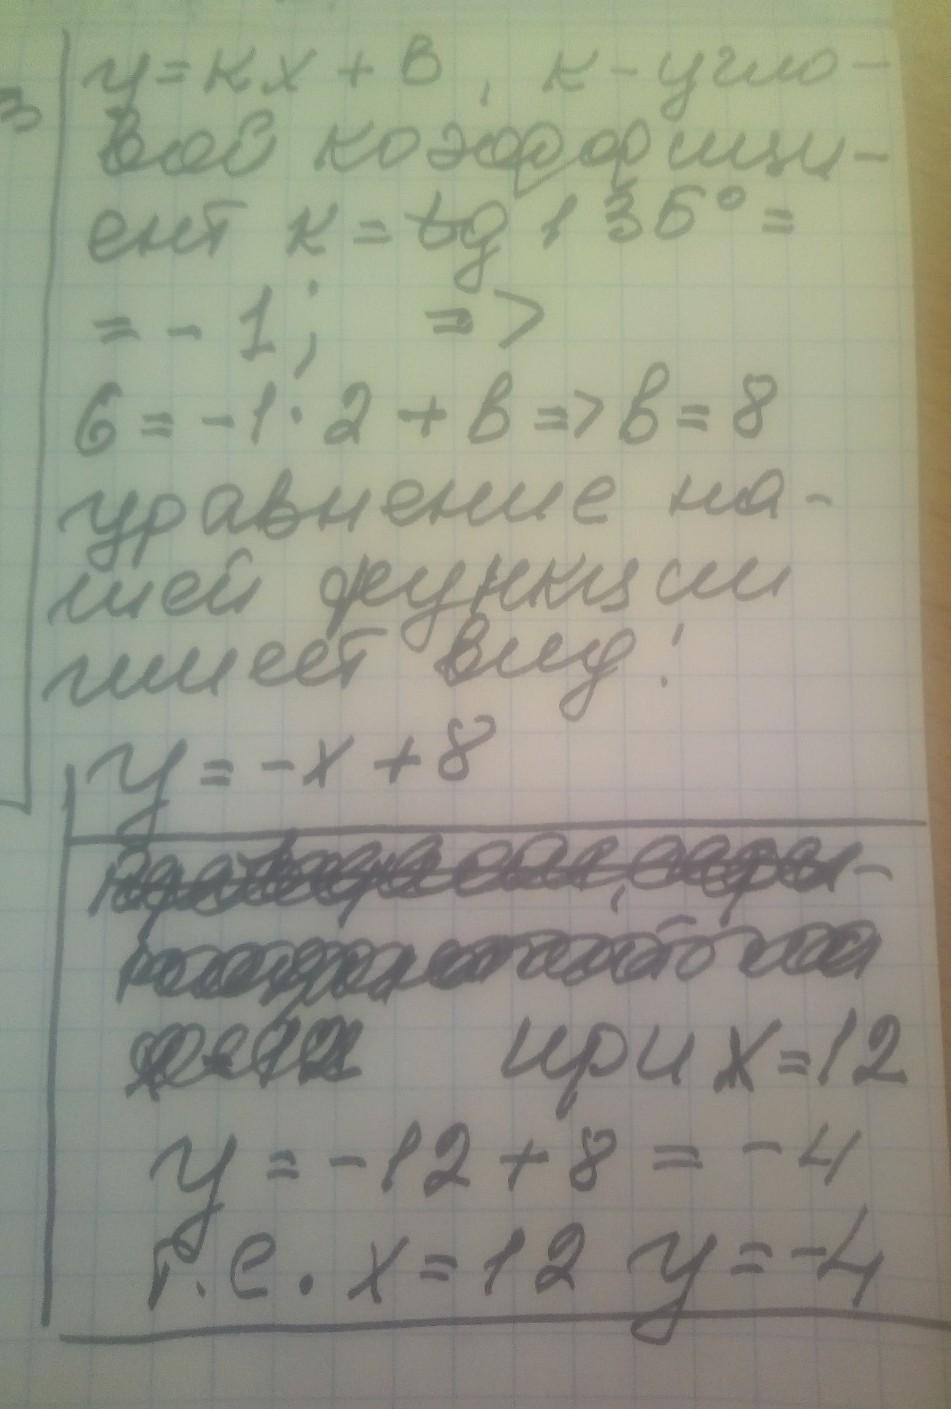 3
y=kx+в, к-угло-
вой коэффици-
ент к=tg 135°=
=-1; =>
6=-1·2+в=>в=8
уравнение на-
шей функции
имеет вид:
y=-x+8
при x=12
y=-12+8=-4
т.е. x=12 y=-4